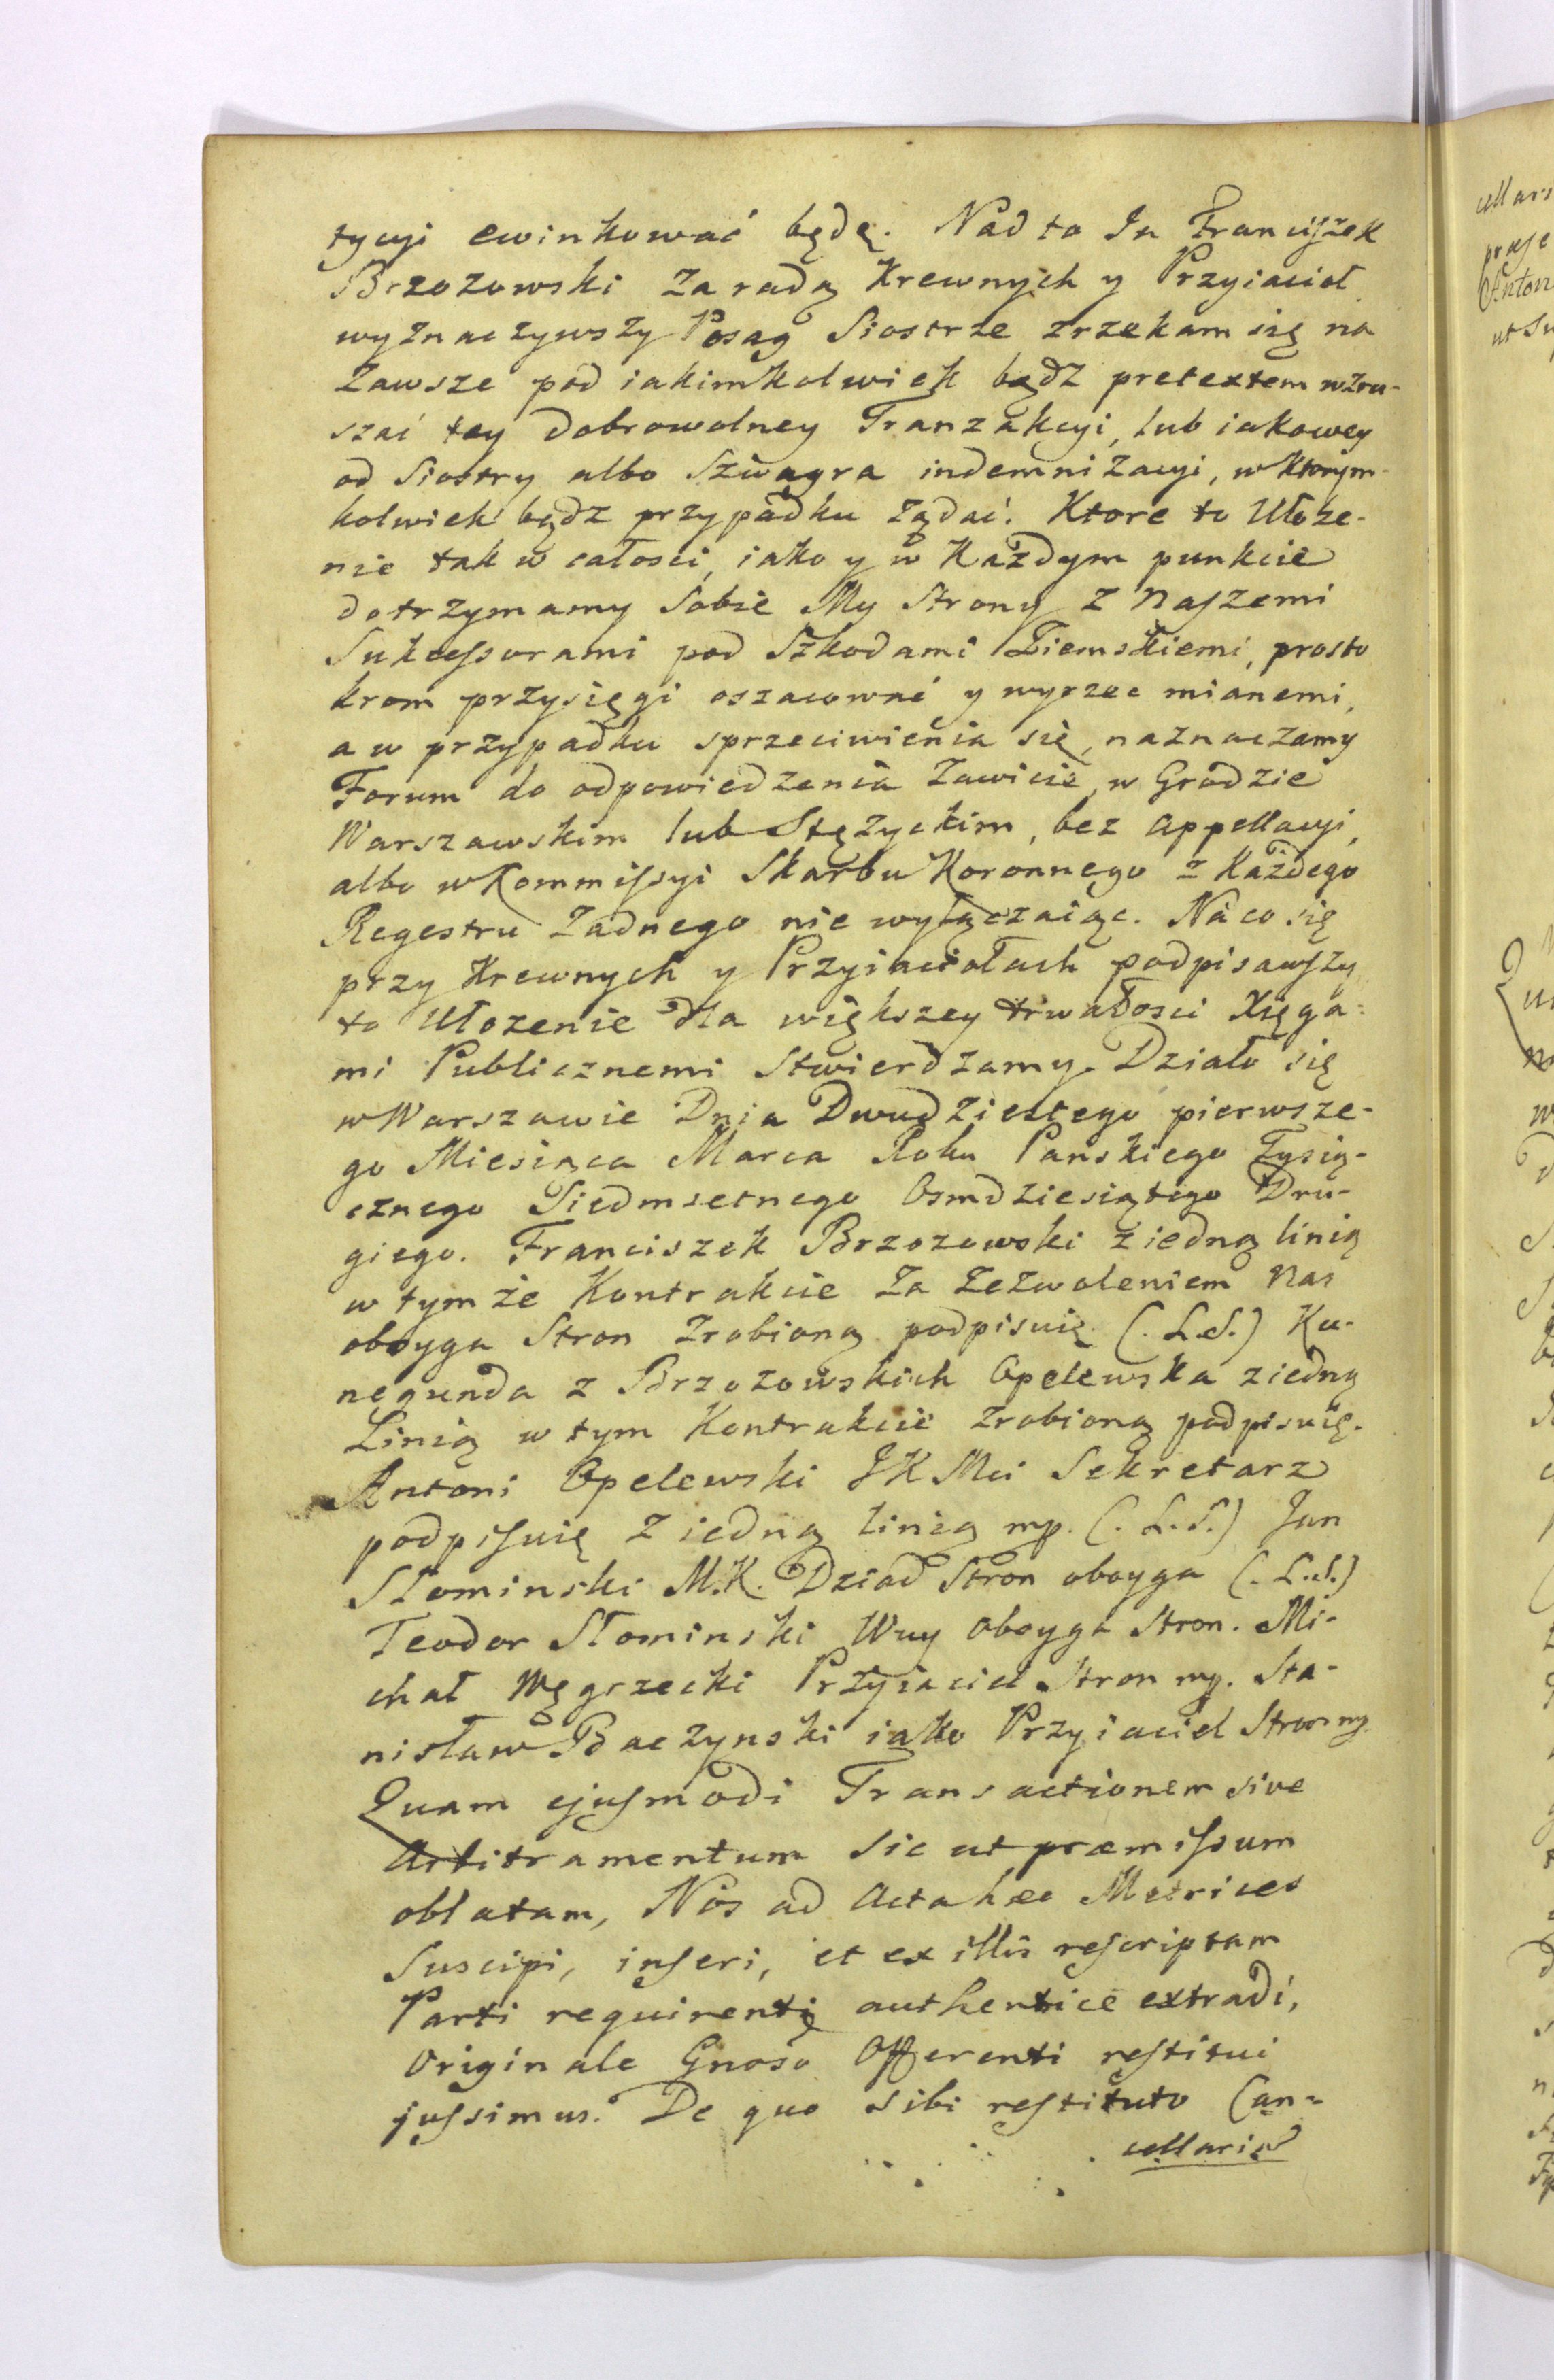 tycyi ewinkować będę. Nad to Ja Franciszek
Brzozowski za radą Krewnych y Przyiacioł
wyznaczywszy Posag Siostrze zrzekam się na
Zawsze pod iakimkolwiek bądz pretextem wzru-
szać tey dobrowolney Tranzakcyi, lub iakowey
od Siostry albo Szwagra indemnizacyi, w Ktorym-
kolwiek bądz przypadku Ządać. Ktore to Ułoze-
nie tak w całosci, iako y w Kazdym punkcie
dotrzymamy Sobie My Strony z Naszemi
Sukcessorami pod Szkodami Ziemskiemi, prosto
krom przysięgi oszacować y wyrzec mianemi,
a w przypadku sprzeciwienia się, naznaczamy
Forum do odpowiedzenia Zawicie, w Grodzie
Warszawskim lub Stęzyckim, bez Appellacyi,
albo w Kommissyi Skarbu Koronnego z Każdego
Regestru Zadnego nie wyłączaiąc. Na co się
przy Krewnych y Przyiaciołach podpisawszy
to Ułozenie dla większey trwałosci Xięga-
mi Publicznemi Stwierdzamy. Działo się
w Warszawie Dnia Dwudziestego pierwsze-
go Miesiąca Marca Roku Panskiego Tysią-
cznego Siedmsetnego Osmdziesiątego Dru-
giego. Franciszek Brzozowski z iedną linią
w tym że Kontrakcie Za Zezwoleniem Nas
oboyga Stron Zrobioną podpisuię (. L.S.) Ku-
negunda z Brzozowskich Opelewska z iedną
Linią w tym Kontrakcie Zrobioną podpisuię.
Antoni Opelewski JK Mci Sekretarz
podpisuię Z iedną linią mp. (. L.S.) Jan
Słominski M.K. Dziad Stron oboyga (. L.S.)
Teodor Słominski Wuy oboyga Stron. Mi-
chał Węgrzecki Przyiaciel Stron mp. Sta-
nisław Baczynski iako Przyiaciel Stron mp
Quam ejusmodi Transactionem sive
Arbitramentum Sic ut præmissum
oblatam, Nos ad Acta hæc Metrices
Suscipi, inseri, et ex illis rescriptam
Parti requirenti authentice extradi,
Originale Gnoso Offerenti restitui
jussimus. De quo Sibi restituto Can-
cellariæ